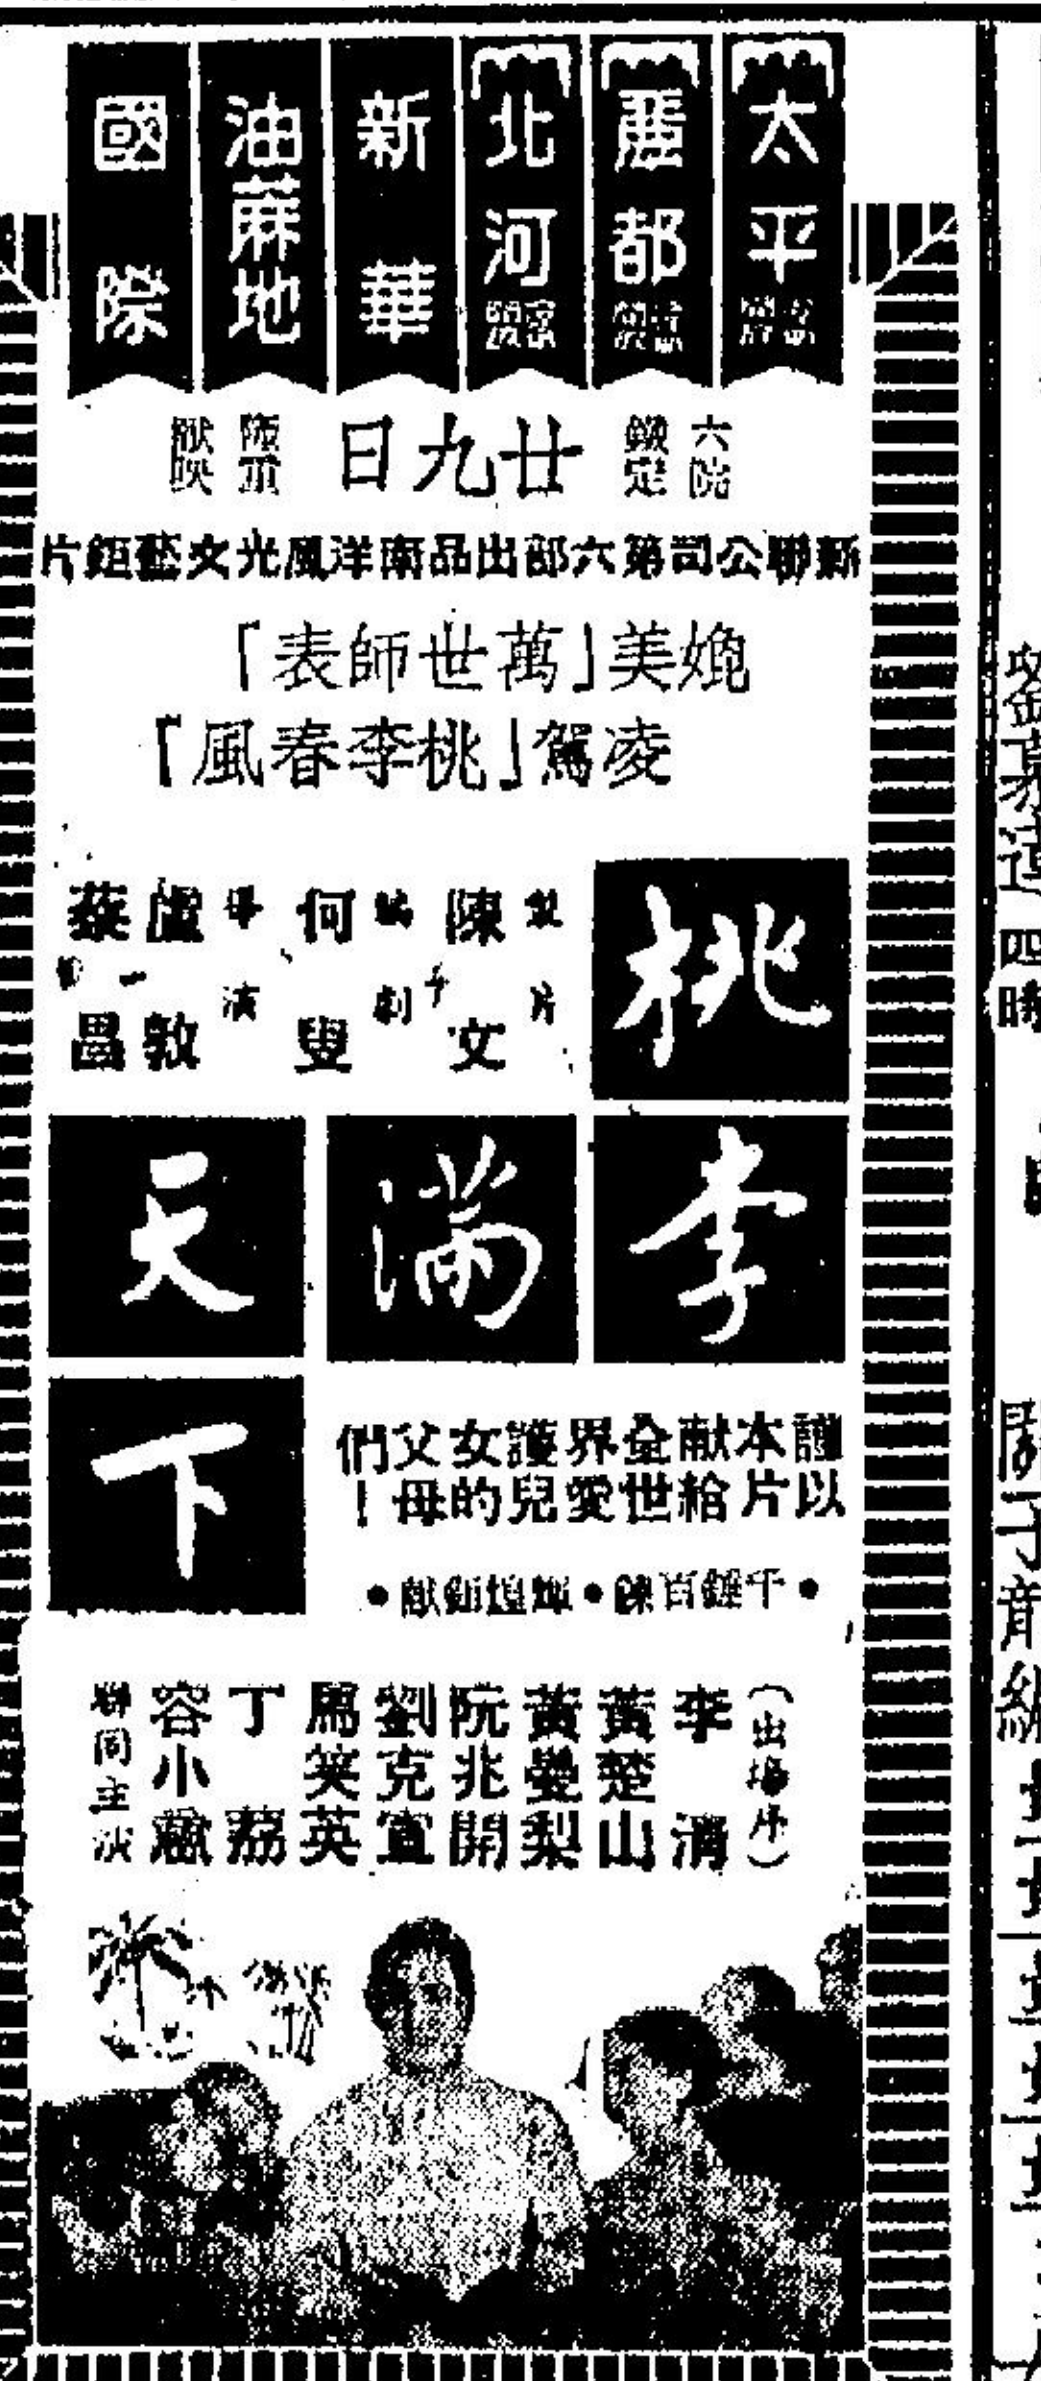 太平
麗都
北河
新華
油蔴地
國際
六院
鐵定
廿九日
隆重
献映
新聯公司第六部出品南洋風光文藝鉅片
媲美「萬世師表」
凌駕「桃李春風」
桃李滿天下
製片 陳文
編劇 何叟
導演 盧敦 蔡昌
謹以本片献給全世界愛護兒女的父母們！
•千錘百鍊•輝煌鉅献•
（出場序）
李清
黃楚山
黃曼梨
阮兆開
劉克宣
馬笑英
丁荔
容小意
聯同主演
四時